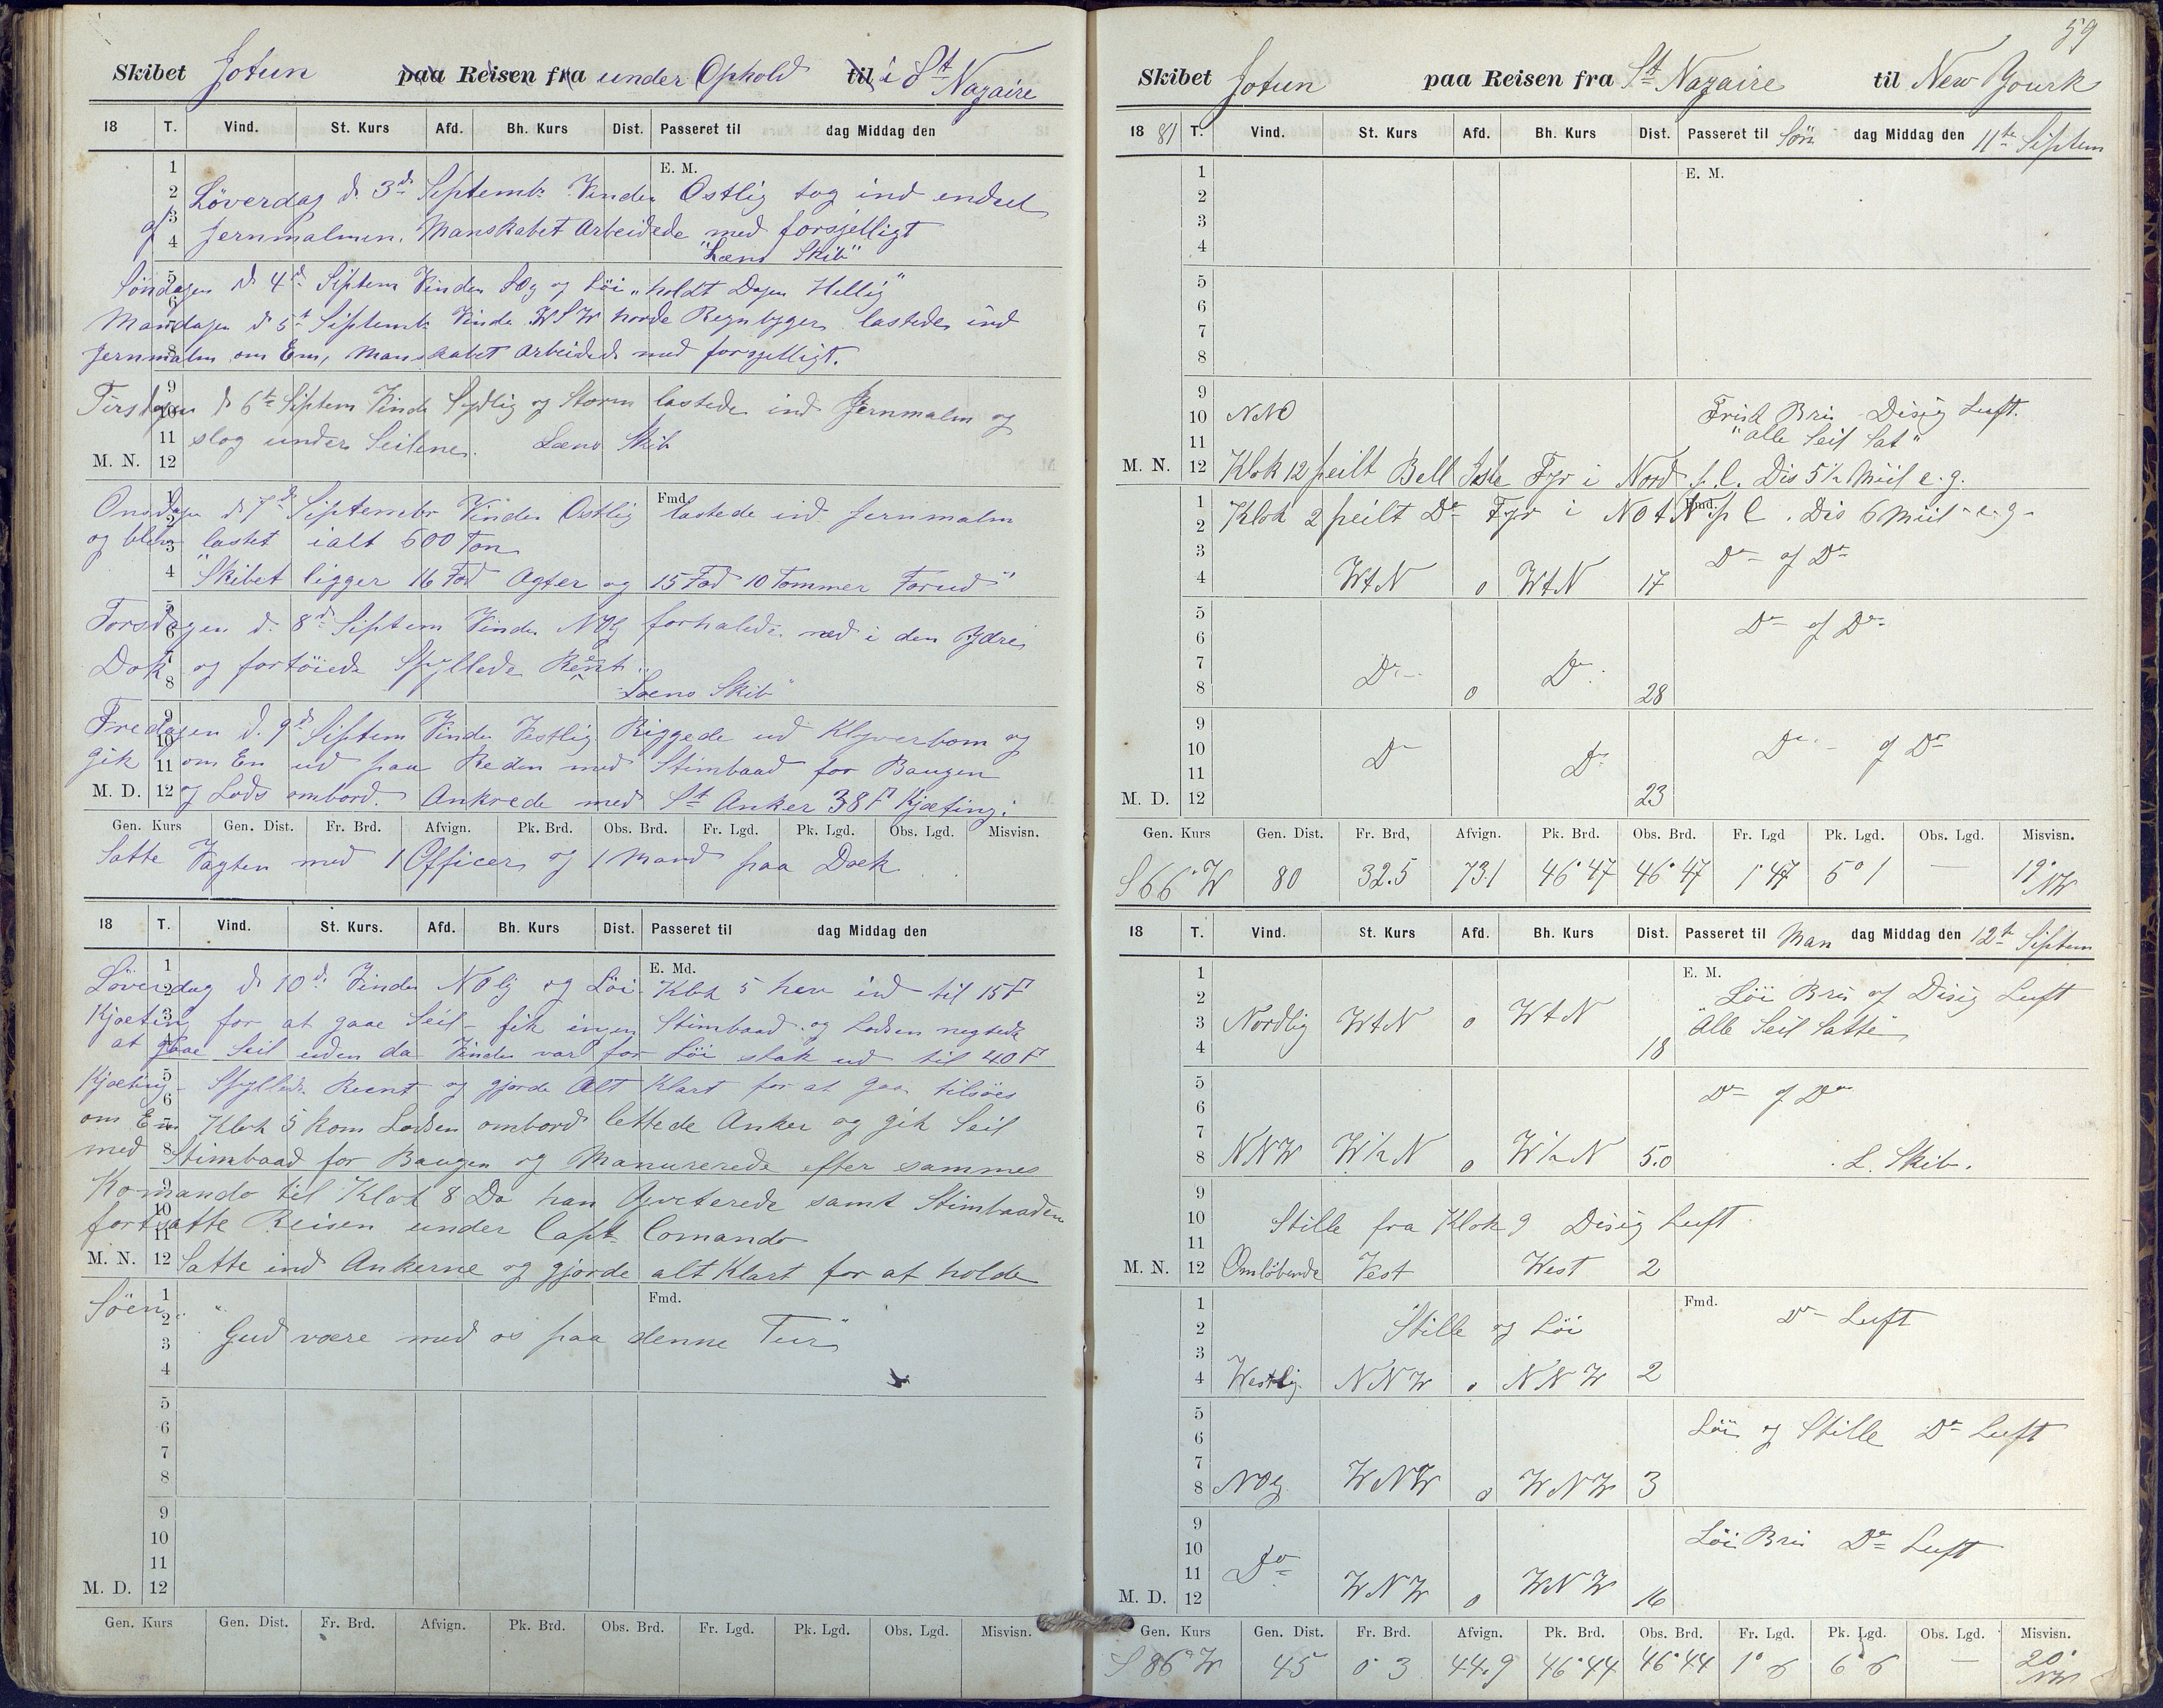 Skibet Jotun paa Reisen fra under Ophold til i St Nazaire
18 T. Vind. St. Kurs Afd. Bh. Kurs Dist. Passeret til dag Middag den
E. M.
Löverdag d. 3d Septembr Vinden Ostlig tog ind endeel
af Jernmalmen. Manskabet Arbeidede med forsjelligt
"Læns Skib"
Söndagen d 4d Septem Vinden Løg og Löi "holdt Dagen Hellig"
Mandagen d 5t Septembr Vinden WSW harde Regnbyger lastede ind
Jernmalm om Em, Manskabet Arbeided med forsjelligt.
Tirsdagen d 6te Septem Vinden Sydlig og Storm lastede ind Jernmalm og
slog under Seilene. Læns Skib
M. N.
Onsdagen d 7de Septembr Vinden Ostlig Fmd. lastede ind Jernmalm
og blev lastet ialt 600 Ton
"Skibet ligger 16 Fod Agter og 15 Fod 10 Tommer Forud"
Torsdagen d. 8d Septem Vinden NOlg forhalede ned i den Ydre
Dok og fortöiede Spyllede Reent
"Læns Skib"
Fredagen d. 9d Septem Vinden Vestlig Riggede ud Klyverbom og
gik om Em ud paa Reden med Stimbaad for Baugen
M. D. 12 og Lods ombord. Ankrede med St Anker 38 F Kjæting.
Gen. Kurs Gen. Dist. Fr. Brd. Afvign. Pk. Brd. Obs. Brd. Fr. Lgd. Pk. Lgd. Obs. Lgd. Misvisn.
Satte Vagten med 1 Officer og 1 Mand paa Dæk
18 T. Vind. St. Kurs. Afd. Bh. Kurs Dist. Passeret til dag Middag den
E. Md.
Löverdag d 10d. Vinden NOlg og Löi Klok 5 hev ind til 15 F
Kjæting for at gaae Seil fik ingen Stimbaad og Lodsen negtede
at gaae Seil uden da Vinden var for Löi stak ud til 40 F
Kjæting Spyllede Reent og gjorde Alt Klart for at gaa tilsöes
om Em Klok 5 kom Lodsen ombord lettede Anker og gik Seil
med Stimbaad for Baugen og Manurerede efter sammes
Komando til Klok 8 Da han Qviterede samt Stimbaaden
fortsatte Reisen under Capt. Comando
M. N. 12 Satte ind Ankerne og gjorde alt Klart for at holde
Söen Fmd.
"Gud være med os paa denne Tur"
M. D. 12
Gen. Kurs Gen. Dist. Fr. Brd. Afvign. Pk. Brd. Obs. Brd. Fr. Lgd. Pk. Lgd. Obs. Lgd. Misvisn.
59
Skibet Jotun paa Reisen fra St Nazaire til New Yourk
18 81 T. Vind. St. Kurs Afd. Bh. Kurs Dist. Passeret til Sön dag Middag den 11te Septem
1 E. M.
2
3
4
5
6
7
8
9
10 NNO Frisk Bris Disig Luft.
11 "alle Seil Sat"
M. N. 12 Klok 12 peilt Bell Isle Fyr i Nord p. C. Dis 5½ Miil e.g.
1 Fmd.
2 Klok 2 peilt Do Fyr i NOtN p C. Dis 6 Miil e.g.
3 Do of Do
4 WtN 0 WtN 17
5 Do of Do
6
7
8 Do 0 Do 28
9
10 Do Do Do of Do
11
M. D. 12 23
Gen. Kurs Gen. Dist. Fr. Brd, Afvign. Pk. Brd. Obs. Brd. Fr. Lgd Pk. Lgd. Obs. Lgd. Misvisn.
S66°W 80 32.5 73.1 46°47 46°47 1°47 5°1 — 19° NW
18 T. Vind. St. Kurs Afd. Bh. Kurs Dist. Passeret til Man dag Middag den 12te Septem
1 E. M.
2 Löi Bris of Disig Luft
3 Nordlig WtN 0 WtN "Alle Seil Satte"
4 18
5 Do of Do
6
7
8 NNW W½N 0 W½N 5.0 L. Skib.
9
10 Stille fra Klok 9 Disig Luft
11
M. N. 12 Omlöbende Vest West 2
1 Fmd. Do Luft
2 Stille og Löi
3
4 Westlig NNW 0 NNW 2
5 Löi og Stille Do Luft
6
7
8 NOlg WNW 0 WNW 3
9 Löi Bris Do Luft
10
11 Do
M. D. 12 WNW 0 WNW 16
Gen. Kurs Gen. Dist. Fr. Brd. Afvign. Pk. Brd. Obs. Brd. Fr. Lgd. Pk. Lgd. Obs. Lgd. Misvisn.
S 86°W 45 0 3 44.9 46°44 46°44 1°6 6°6 — 20° NW